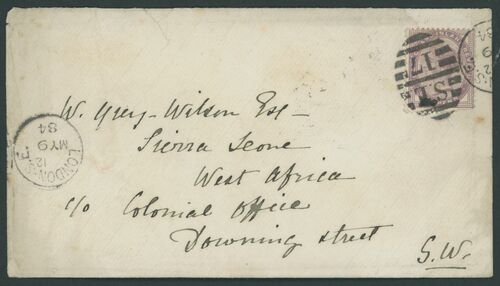 W. Grey-Wilson Esq-
Sierra Leone
West Africa
c/o Colonial Office
Downing street
S.W.
LONDON
12
MY 9
84
17
84
9
12